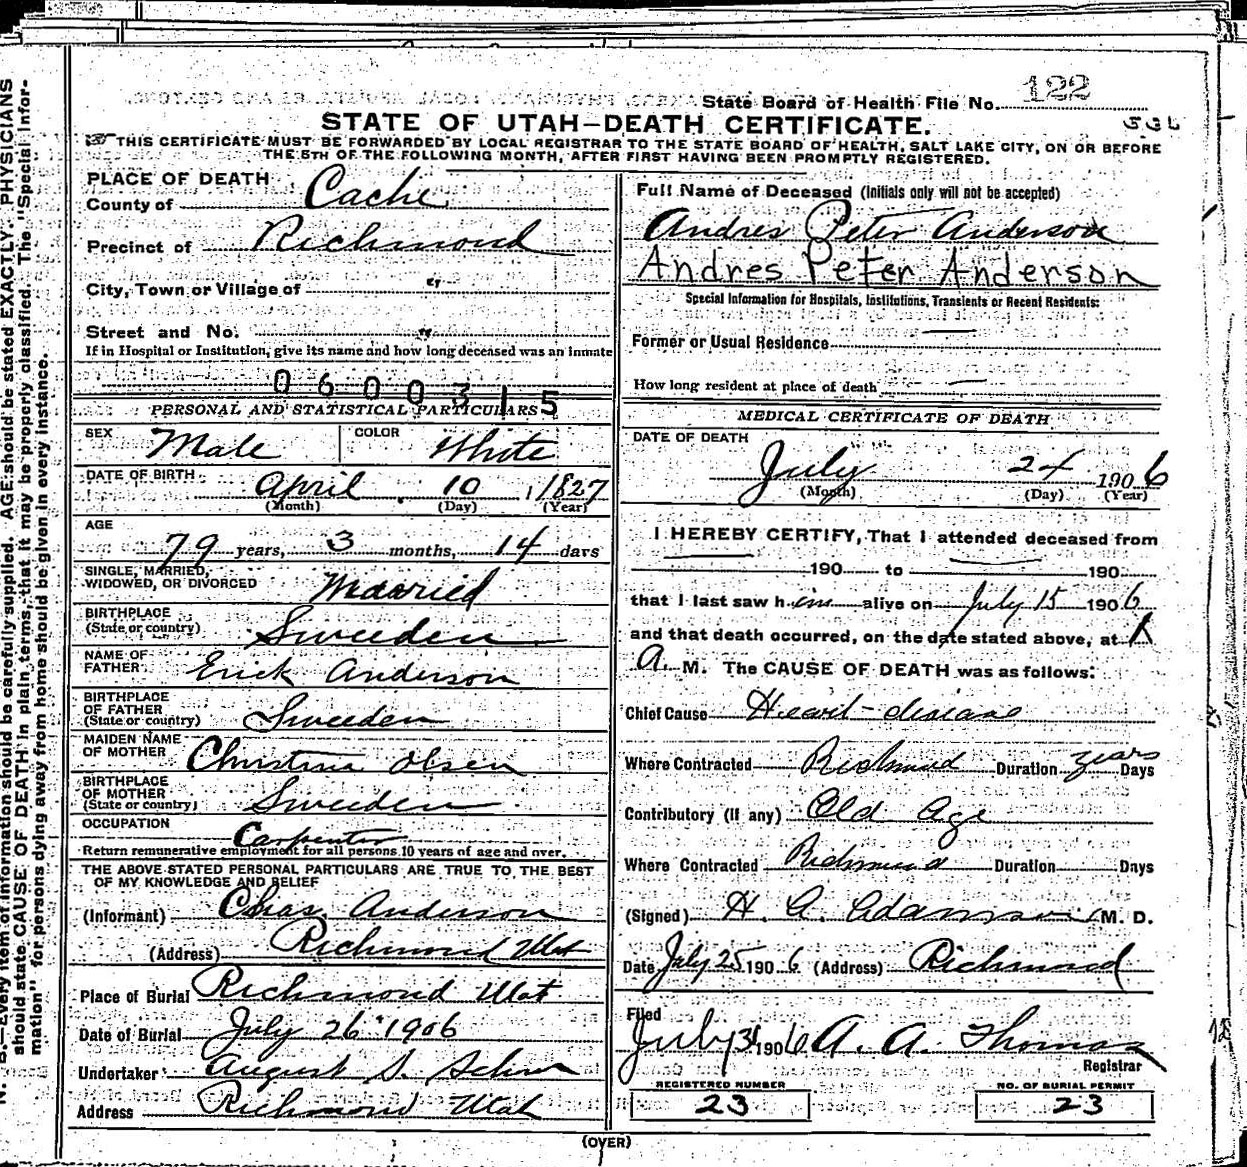 State Board of Health File No. 122
STATE OF UTAH—DEATH CERTIFICATE.
THIS CERTIFICATE MUST BE FORWARDED BY LOCAL REGISTRAR TO THE STATE BOARD OF HEALTH, SALT LAKE CITY, ON OR BEFORE
THE 5TH OF THE FOLLOWING MONTH, AFTER FIRST HAVING BEEN PROMPTLY REGISTERED.
PLACE OF DEATH
County of Cache
Precinct of Richmond
City, Town or Village of "
Street and No. "
If in Hospital or Institution, give its name and how long deceased was an inmate
0600315
PERSONAL AND STATISTICAL PARTICULARS
SEX Male COLOR White
DATE OF BIRTH April 10, 1827
(Month) (Day) (Year)
AGE
79 years, 3 months, 14 days
SINGLE, MARRIED,
WIDOWED, OR DIVORCED Married
BIRTHPLACE
(State or country) Sweeden
NAME OF
FATHER Erick Anderson
BIRTHPLACE
OF FATHER
(State or country) Sweeden
MAIDEN NAME
OF MOTHER Christina Olsen
BIRTHPLACE
OF MOTHER
(State or country) Sweeden
OCCUPATION Carpenter
Return remunerative employment for all persons 10 years of age and over.
THE ABOVE STATED PERSONAL PARTICULARS ARE TRUE TO THE BEST
OF MY KNOWLEDGE AND BELIEF
(Informant) Chas. Anderson
(Address) Richmond Utah
Place of Burial Richmond Utah
Date of Burial July 26 1906
Undertaker August S.
Address Richmond Utah
Full Name of Deceased (Initials only will not be accepted)
Andres Peter Anderson
Andres Peter Anderson
Special Information for Hospitals, Institutions, Transients or Recent Residents:
Former or Usual Residence —
How long resident at place of death —
MEDICAL CERTIFICATE OF DEATH
DATE OF DEATH
July 24 1906
(Month) (Day) (Year)
I HEREBY CERTIFY, That I attended deceased from
190 to 190
that I last saw him alive on July 15 1906
and that death occurred, on the date stated above, at
A. M. The CAUSE OF DEATH was as follows:
Chief Cause Heart-disease
Where Contracted Richmond Duration years Days
Contributory (If any) Old Age
Where Contracted Richmond Duration Days
(Signed) H. A. Adamson M. D.
Date July 25 1906 (Address) Richmond
Filed
July 31 1906 A. A. Thomas
Registrar
REGISTERED NUMBER
23
NO. OF BURIAL PERMIT
23
(OVER)
N. B.—Every item of information should be carefully supplied. AGE should be stated EXACTLY. PHYSICIANS
should state CAUSE OF DEATH in plain terms, that it may be properly classified. The "Special Infor-
mation" for persons dying away from home should be given in every instance.